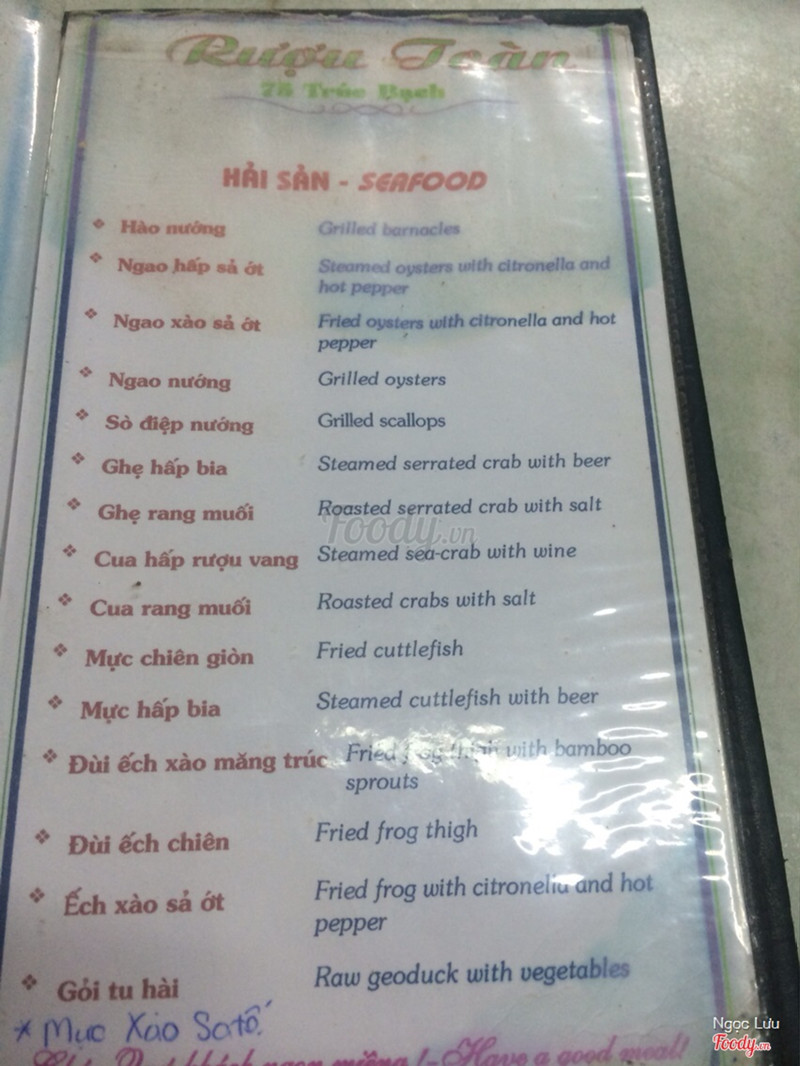 Rượu Toàn
75 Trúc Bạch
HẢI SẢN - SEAFOOD
❖ Hào nướng Grilled barnacles
❖ Ngao hấp sả ớt Steamed oysters with citronella and
hot pepper
❖ Ngao xào sả ớt Fried oysters with citronella and hot
pepper
❖ Ngao nướng Grilled oysters
❖ Sò điệp nướng Grilled scallops
❖ Ghẹ hấp bia Steamed serrated crab with beer
❖ Ghẹ rang muối Roasted serrated crab with salt
Foody.vn
❖ Cua hấp rượu vang Steamed sea-crab with wine
❖ Cua rang muối Roasted crabs with salt
❖ Mực chiên giòn Fried cuttlefish
❖ Mực hấp bia Steamed cuttlefish with beer
❖ Đùi ếch xào măng trúc Fried frog thigh with bamboo
sprouts
❖ Đùi ếch chiên Fried frog thigh
❖ Ếch xào sả ớt Fried frog with citronella and hot
pepper
❖ Gỏi tu hài Raw geoduck with vegetables
* Mực Xào Satế
khách ngon miệng !- Have a good meal!
Ngọc Lưu
Foody.vn